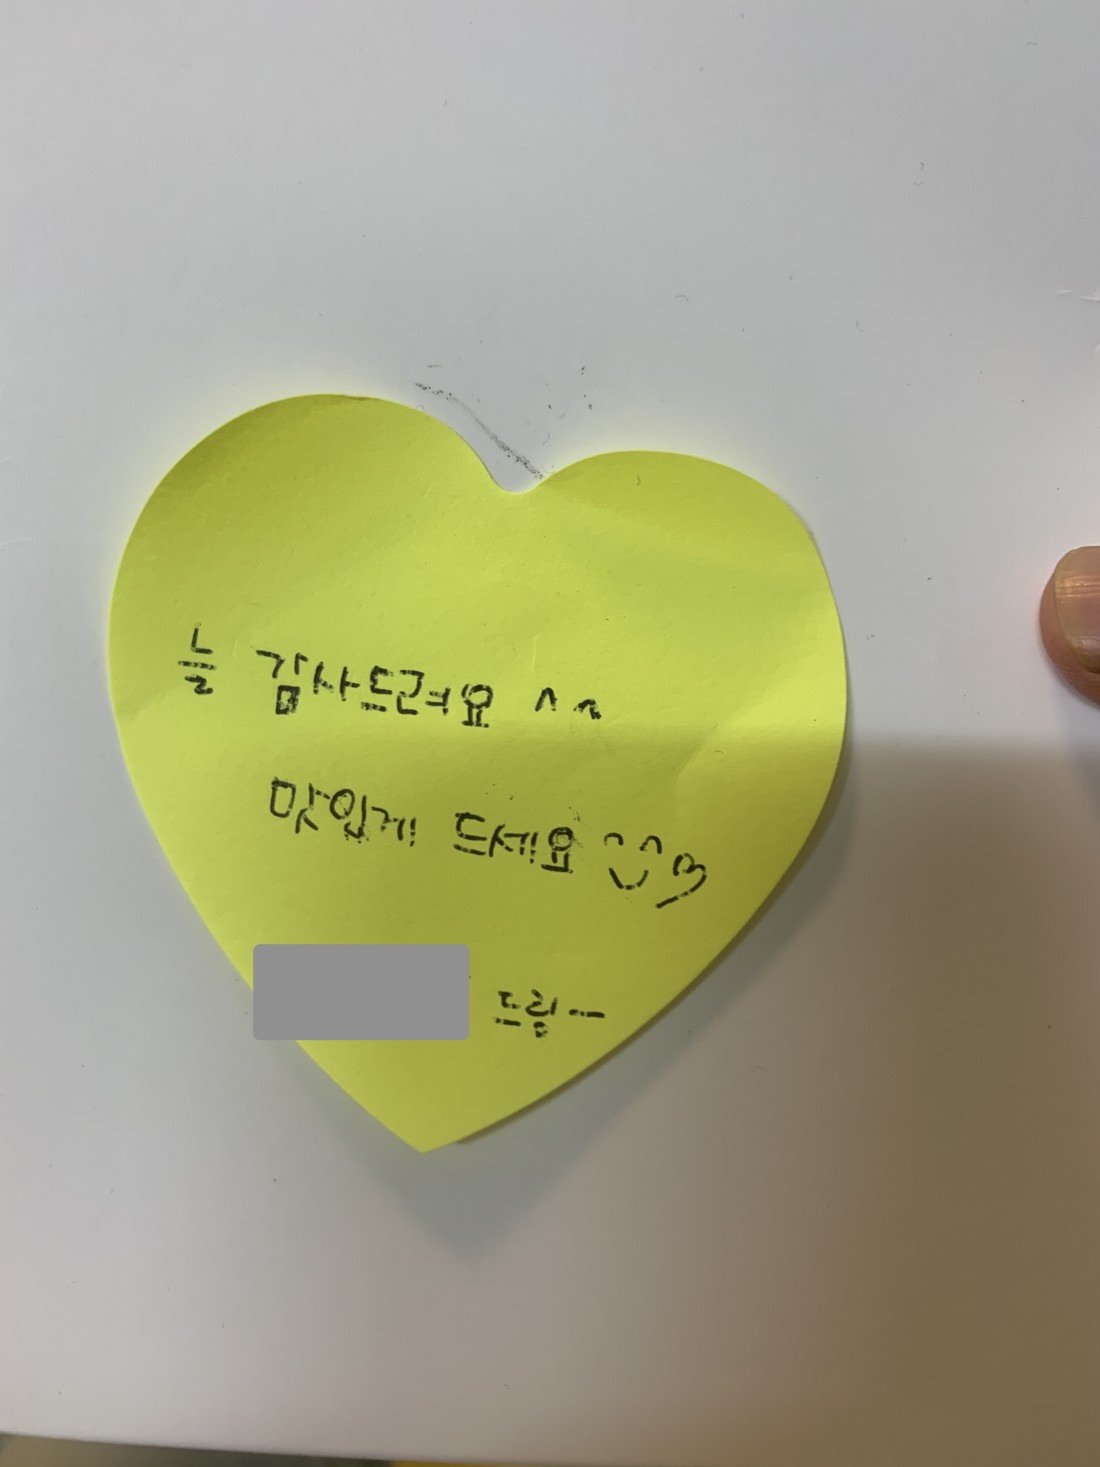 늘 감사드려요 ^^
맛있게 드세요 ^^
드림-